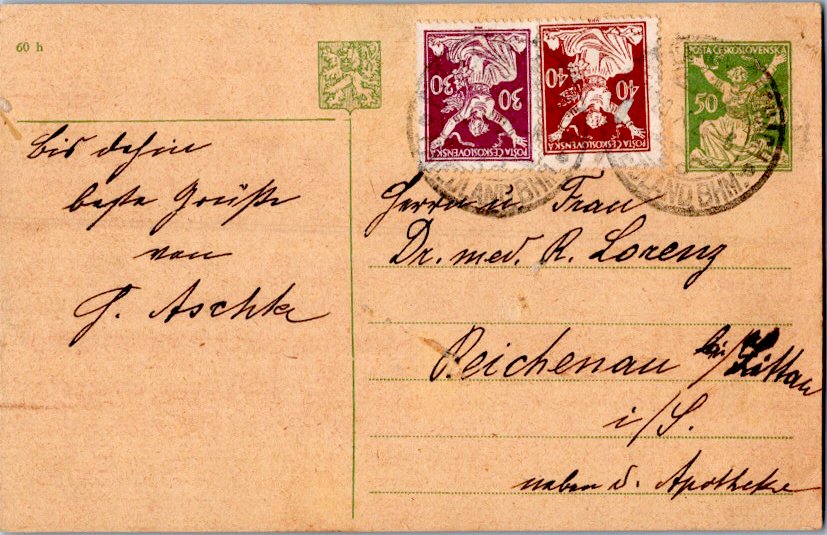 60 h
30
30
POŠTA ČESKOSLOVENSKÁ
40
40
POŠTA ČESKOSLOVENSKÁ
POŠTA ČESKOSLOVENSKÁ
50
LAND BHM.
LAND BHM.
bis dahin
beste Grüße
von
G. Aschke
Herrn u. Frau
Dr. med. R. Lorenz
Reichenau bei/Zittau
i/S.
neben d. Apotheke